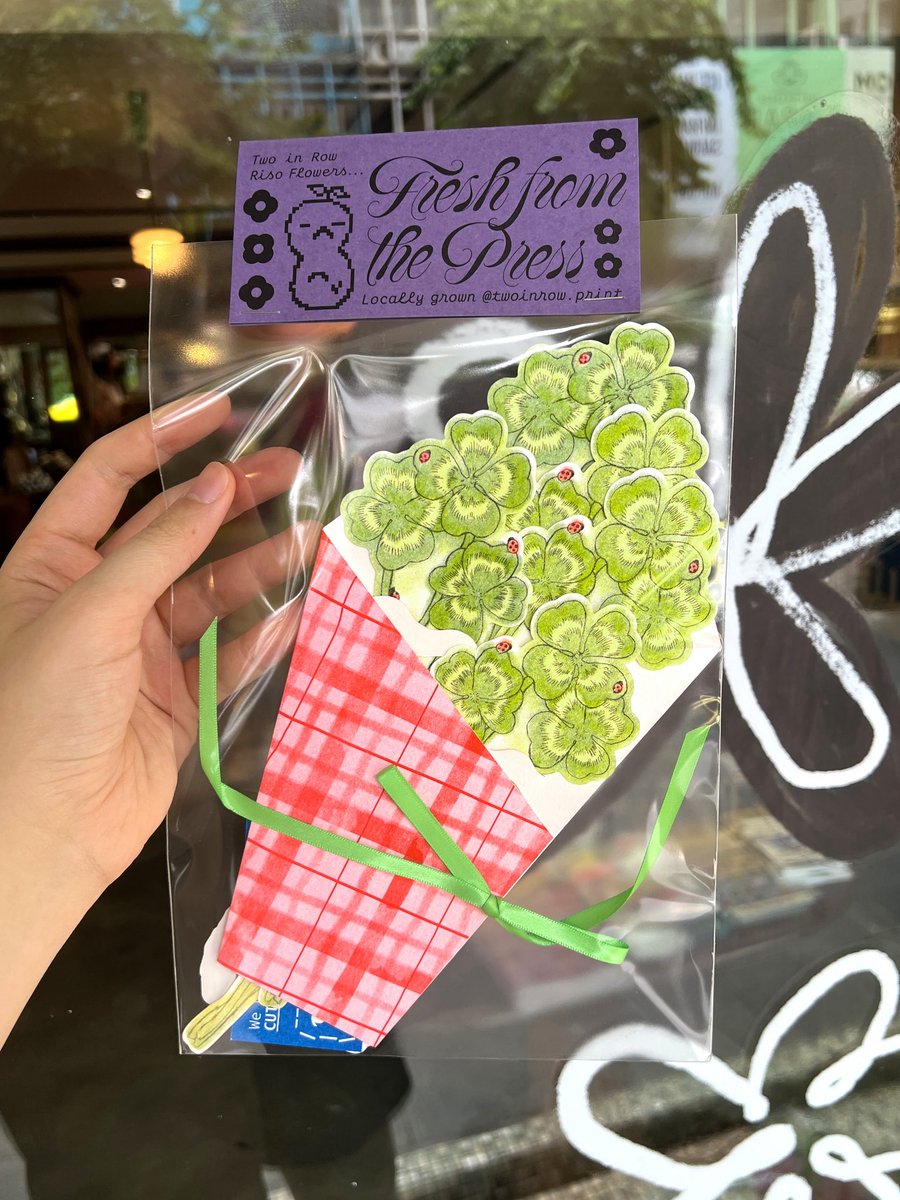 Two in Row
Riso Flowers...
Fresh from
the Press
Locally grown @twoinrow.print
We
CUT